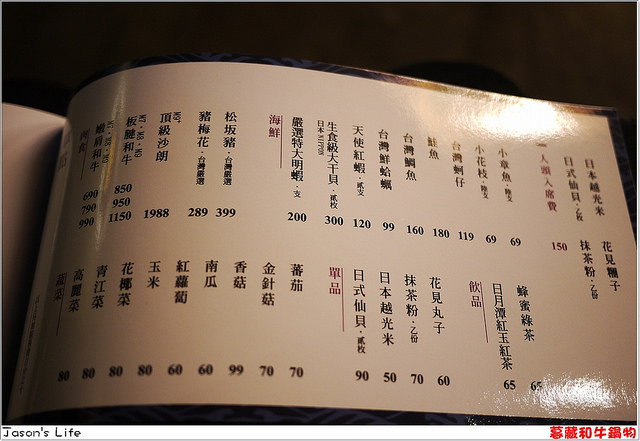 一人頭入席費 150
日本越光米
日式仙貝·乙枚
花見糰子
抹茶粉·乙份
肉食
嫩肩和牛 M7·M8·M9 690 790 990
板腱和牛 M7·M8·M9 850 950 1150
頂級沙朗 M9+ 1988
豬梅花·台灣嚴選 289
松坂豬·台灣嚴選 399
海鮮
嚴選特大明蝦·支 200
生食級大干貝·貳枚 日本 300
天使紅蝦·貳支 120
台灣鮮蛤蠣 99
台灣鯛魚 160
鮭魚 180
台灣蚵仔 119
小花枝·陸支 69
小章魚·陸支 69
蔬菜
高麗菜 80
青江菜 80
花椰菜 80
玉米 80
紅蘿蔔 60
南瓜 60
香菇 99
金針菇 70
蕃茄 70
單品
日式仙貝·貳枚 90
日本越光米 50
抹茶粉·乙份 70
花見丸子 60
飲品
日月潭紅玉紅茶 65
蜂蜜綠茶 65
Jason's Life
慕藏和牛鍋物